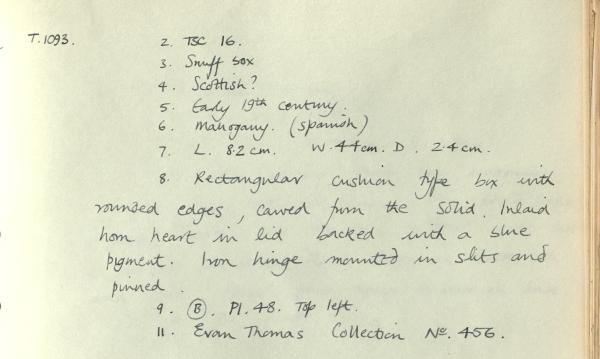 T.1093. 2. TSC 16.
3. Snuff box
4. Scottish?
5. Early 19th century.
6. Mahogany. (Spanish)
7. L. 8.2 cm. W. 4.4 cm. D. 2.4 cm.
8. Rectangular cushion type box with
rounded edges, carved from the solid. Inlaid
horn heart in lid backed with a blue
pigment. Iron hinge mounted in slits and
pinned.
9. B. Pl. 48. Top left.
11. Evan Thomas Collection No. 456.